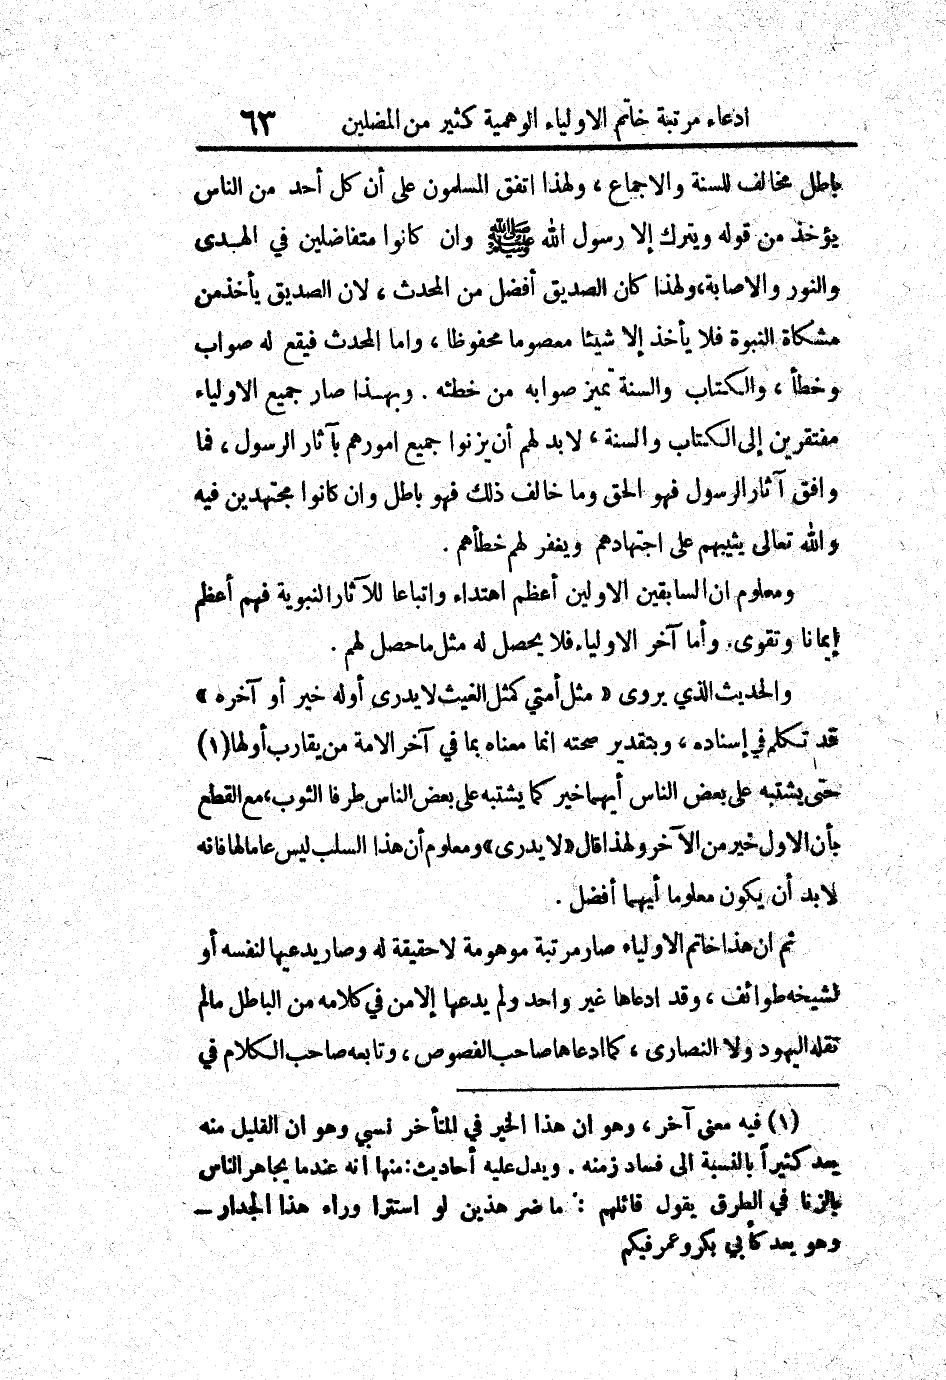 ادعاء مرتبة خاتم الاولياء الوهمية كثير من المضلين ٦٣
باطل مخالف للسنة والاجماع ، ولهذا اتفق المسلمون على أن كل أحد من الناس
يؤخذ من قوله ويترك إلا رسول الله ﷺ وان كانوا متفاضلين في الهدى
والنور والاصابة، ولهذا كان الصديق أفضل من المحدث ، لان الصديق يأخذ من
مشكاة النبوة فلا يأخذ إلا شيئا معصوما محفوظا ، واما المحدث فيقع له صواب
وخطأ ، والكتاب والسنة تميز صوابه من خطئه . وبهذا صار جميع الاولياء
مفتقرين إلى الكتاب والسنة ، لابد لهم أن يزنوا جميع امورهم بآثار الرسول ، فما
وافق آثار الرسول فهو الحق وما خالف ذلك فهو باطل وان كانوا مجتهدين فيه
والله تعالى يثيبهم على اجتهادهم ويغفر لهم خطأهم .
ومعلوم ان السابقين الاولين أعظم اهتداء واتباعا للآثار النبوية فهم أعظم
إيمانا وتقوى. وأما آخر الاولياء فلا يحصل له مثل ما حصل لهم .
والحديث الذي يروى « مثل أمتي كمثل الغيث لا يدرى أوله خير أو آخره »
قد تكلم في إسناده ، وبتقدير صحته انما معناه بما في آخر الامة من يقارب أولها (١)
حتى يشتبه على بعض الناس أيهما خير كما يشتبه على بعض الناس طرفا الثوب، مع القطع
بأن الاول خير من الآخر ولهذا قال «لا يدرى» ومعلوم أن هذا السلب ليس عاما لها فانه
لابد أن يكون معلوما أيهما أفضل .
ثم ان هذا خاتم الاولياء صار مرتبة موهومة لا حقيقة له وصار يدعيها لنفسه أو
لشيخه طوائف ، وقد ادعاها غير واحد ولم يدعها إلا من في كلامه من الباطل مالم
تقله اليهود ولا النصارى ، كما ادعاها صاحب الفصوص ، وتابعه صاحب الكلام في
(١) فيه معنى آخر ، وهو ان هذا الخير في المتأخر نسبي وهو ان القليل منه
يعد كثيراً بالنسبة الى فساد زمنه . ويدل عليه أحاديث: منها انه عندما يجاهر الناس
بالزنا في الطرق يقول قائلهم : ما ضر هذين لو استترا وراء هذا الجدار ــ
وهو يعد كأبي بكر وعمر فيكم